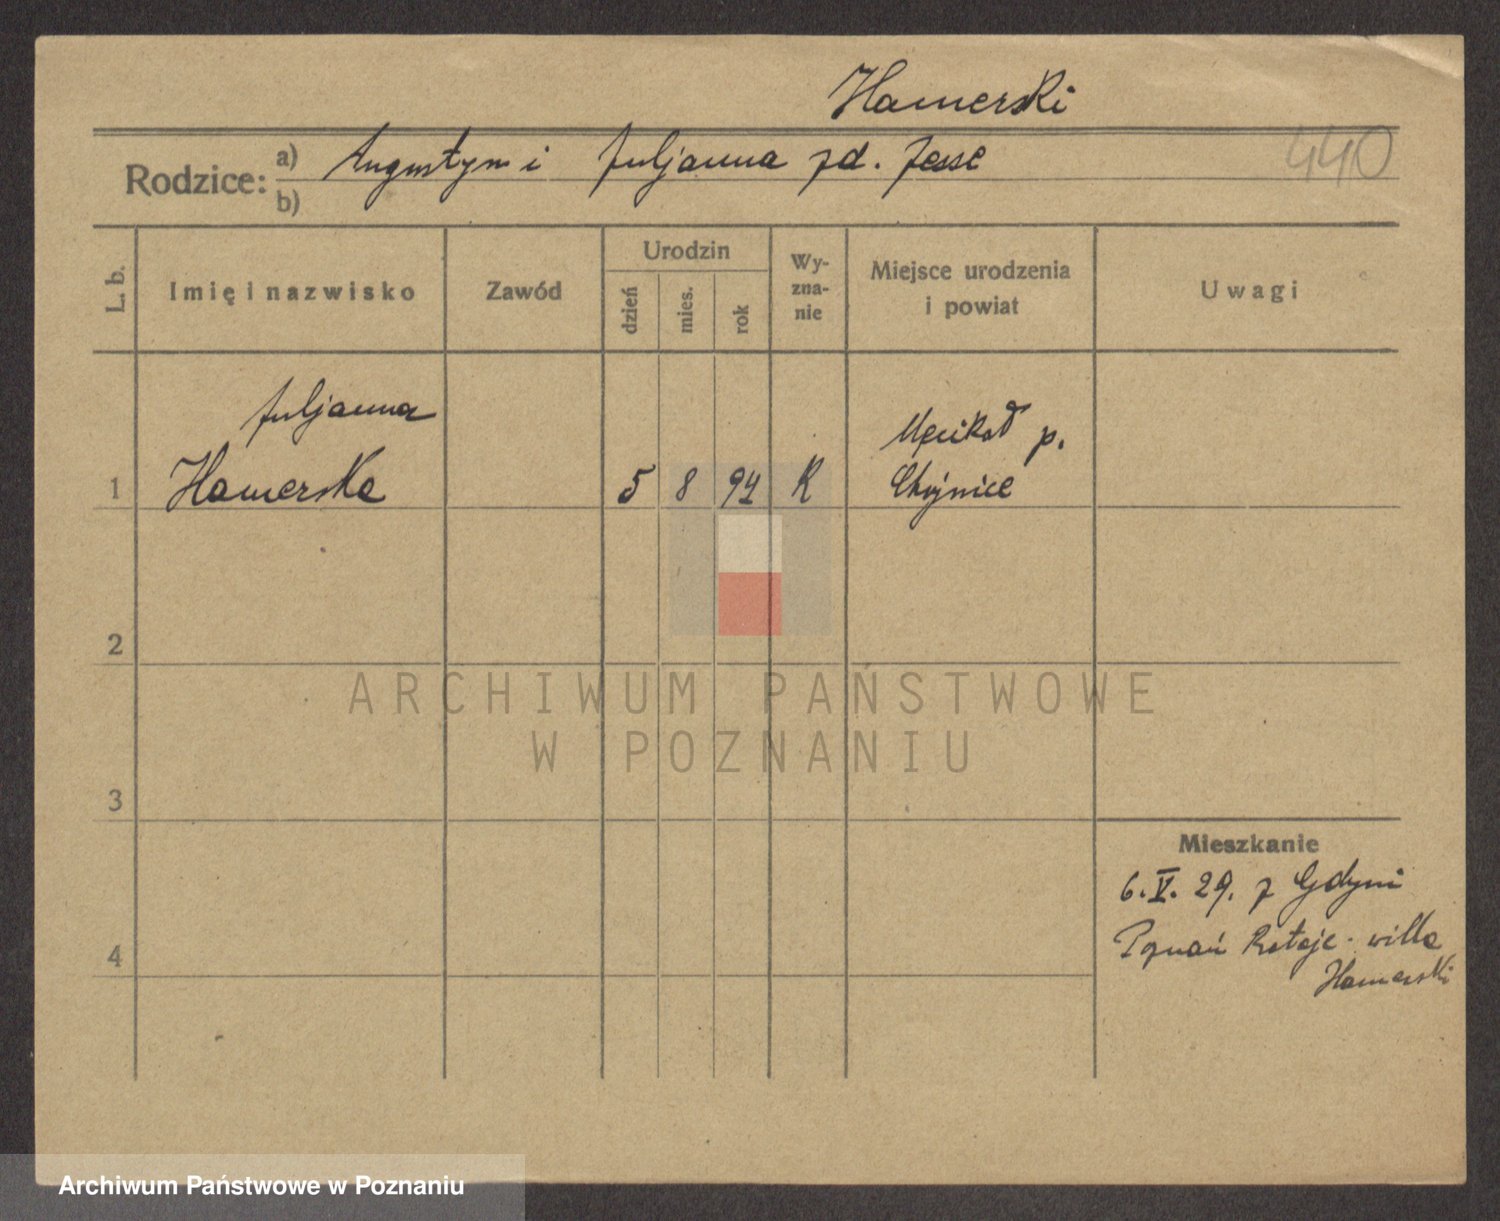 Hamerski
440
Rodzice: a) Augustyn i Juljanna zd. Jesse
b)
L. b.
Imię i nazwisko
Zawód
Urodzin
dzień
mies.
rok
Wy-
zna-
nie
Miejsce urodzenia
i powiat
Uwagi
Juljanna
1 Hamerska 5 8 94 K
Męcikał p.
Chojnice
2
ARCHIWUM PAŃSTWOWE
W POZNANIU
3
Mieszkanie
6.V.29. z Gdyni
4 Poznań Rataje. willa
Hamerski
Archiwum Państwowe w Poznaniu